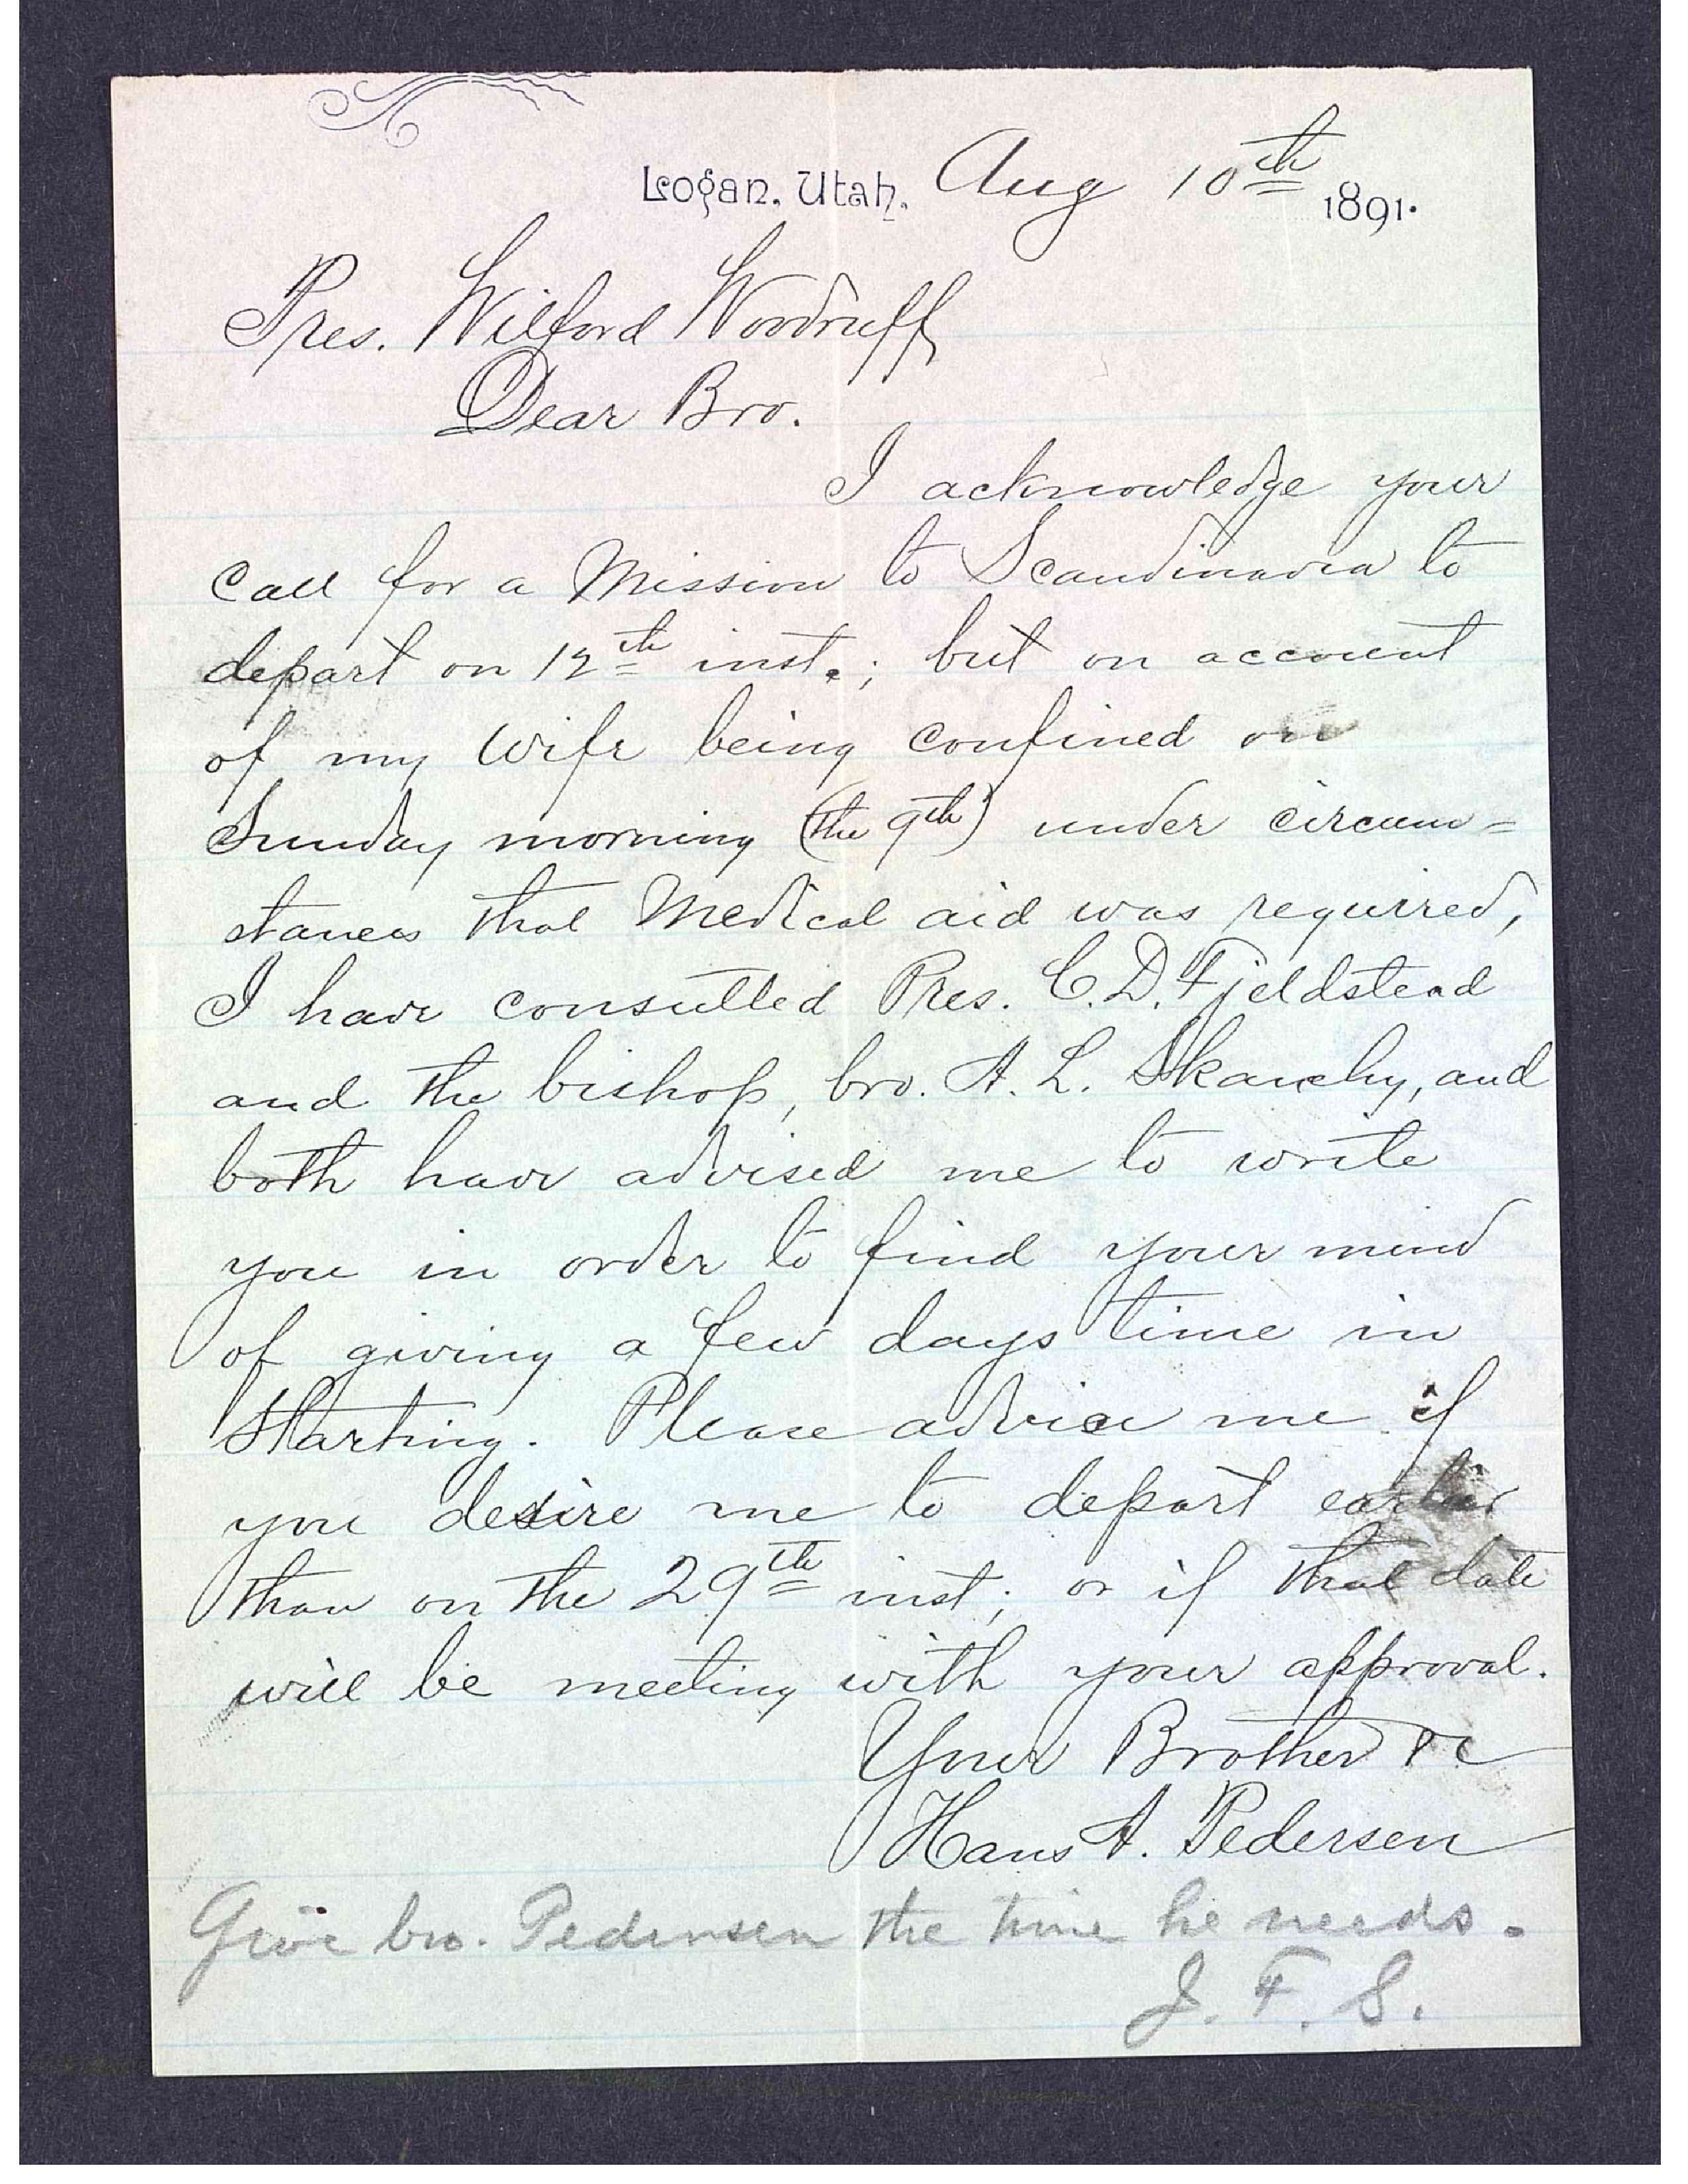 Logan, Utah, Aug 10th 1891.
Pres. Wilford Woodruff
Dear Bro.
I acknowledge your
call for a Mission to Scandinavia to
depart on 12th inst.; but on account
of my wife being confined on
Sunday morning (the 9th) under circum=
stances that Medical aid was required,
I have consulted Pres. C. D. Fjeldstead
and the bishop, bro. A. L. Skanchy, and
both have advised me to write
you in order to find your mind
of giving a few days time in
starting. Please advice me if
you desire me to depart earlier
than on the 29th inst; or if that date
will be meeting with your approval.
Your Brother &c
Hans A. Pedersen
Give bro. Pedersen the time he needs.
J. F. S.